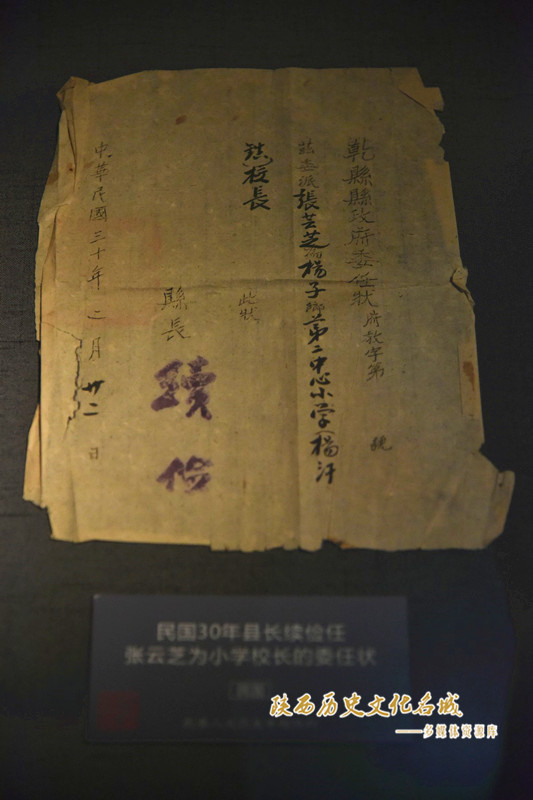 乾縣縣政府委任狀 府教字第 號
茲委派張芸芝為楊子鄉第二中心小学(楊汗
鎮校長
此狀
縣長
續儉
中華民國三十年二月廿二日
民国30年县长续俭任
张云芝为小学校长的委任状
陕西历史文化名城
——多媒体资源库